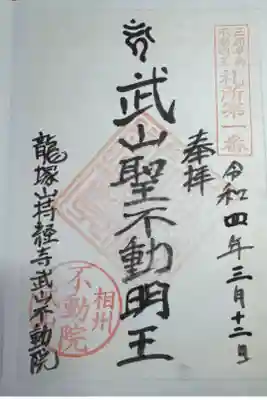 三浦半島
不動尊
札所第一番
奉拝
令和四年三月十二日
武山聖不動明王
龍塚山持経寺武山不動院
相州
不動院